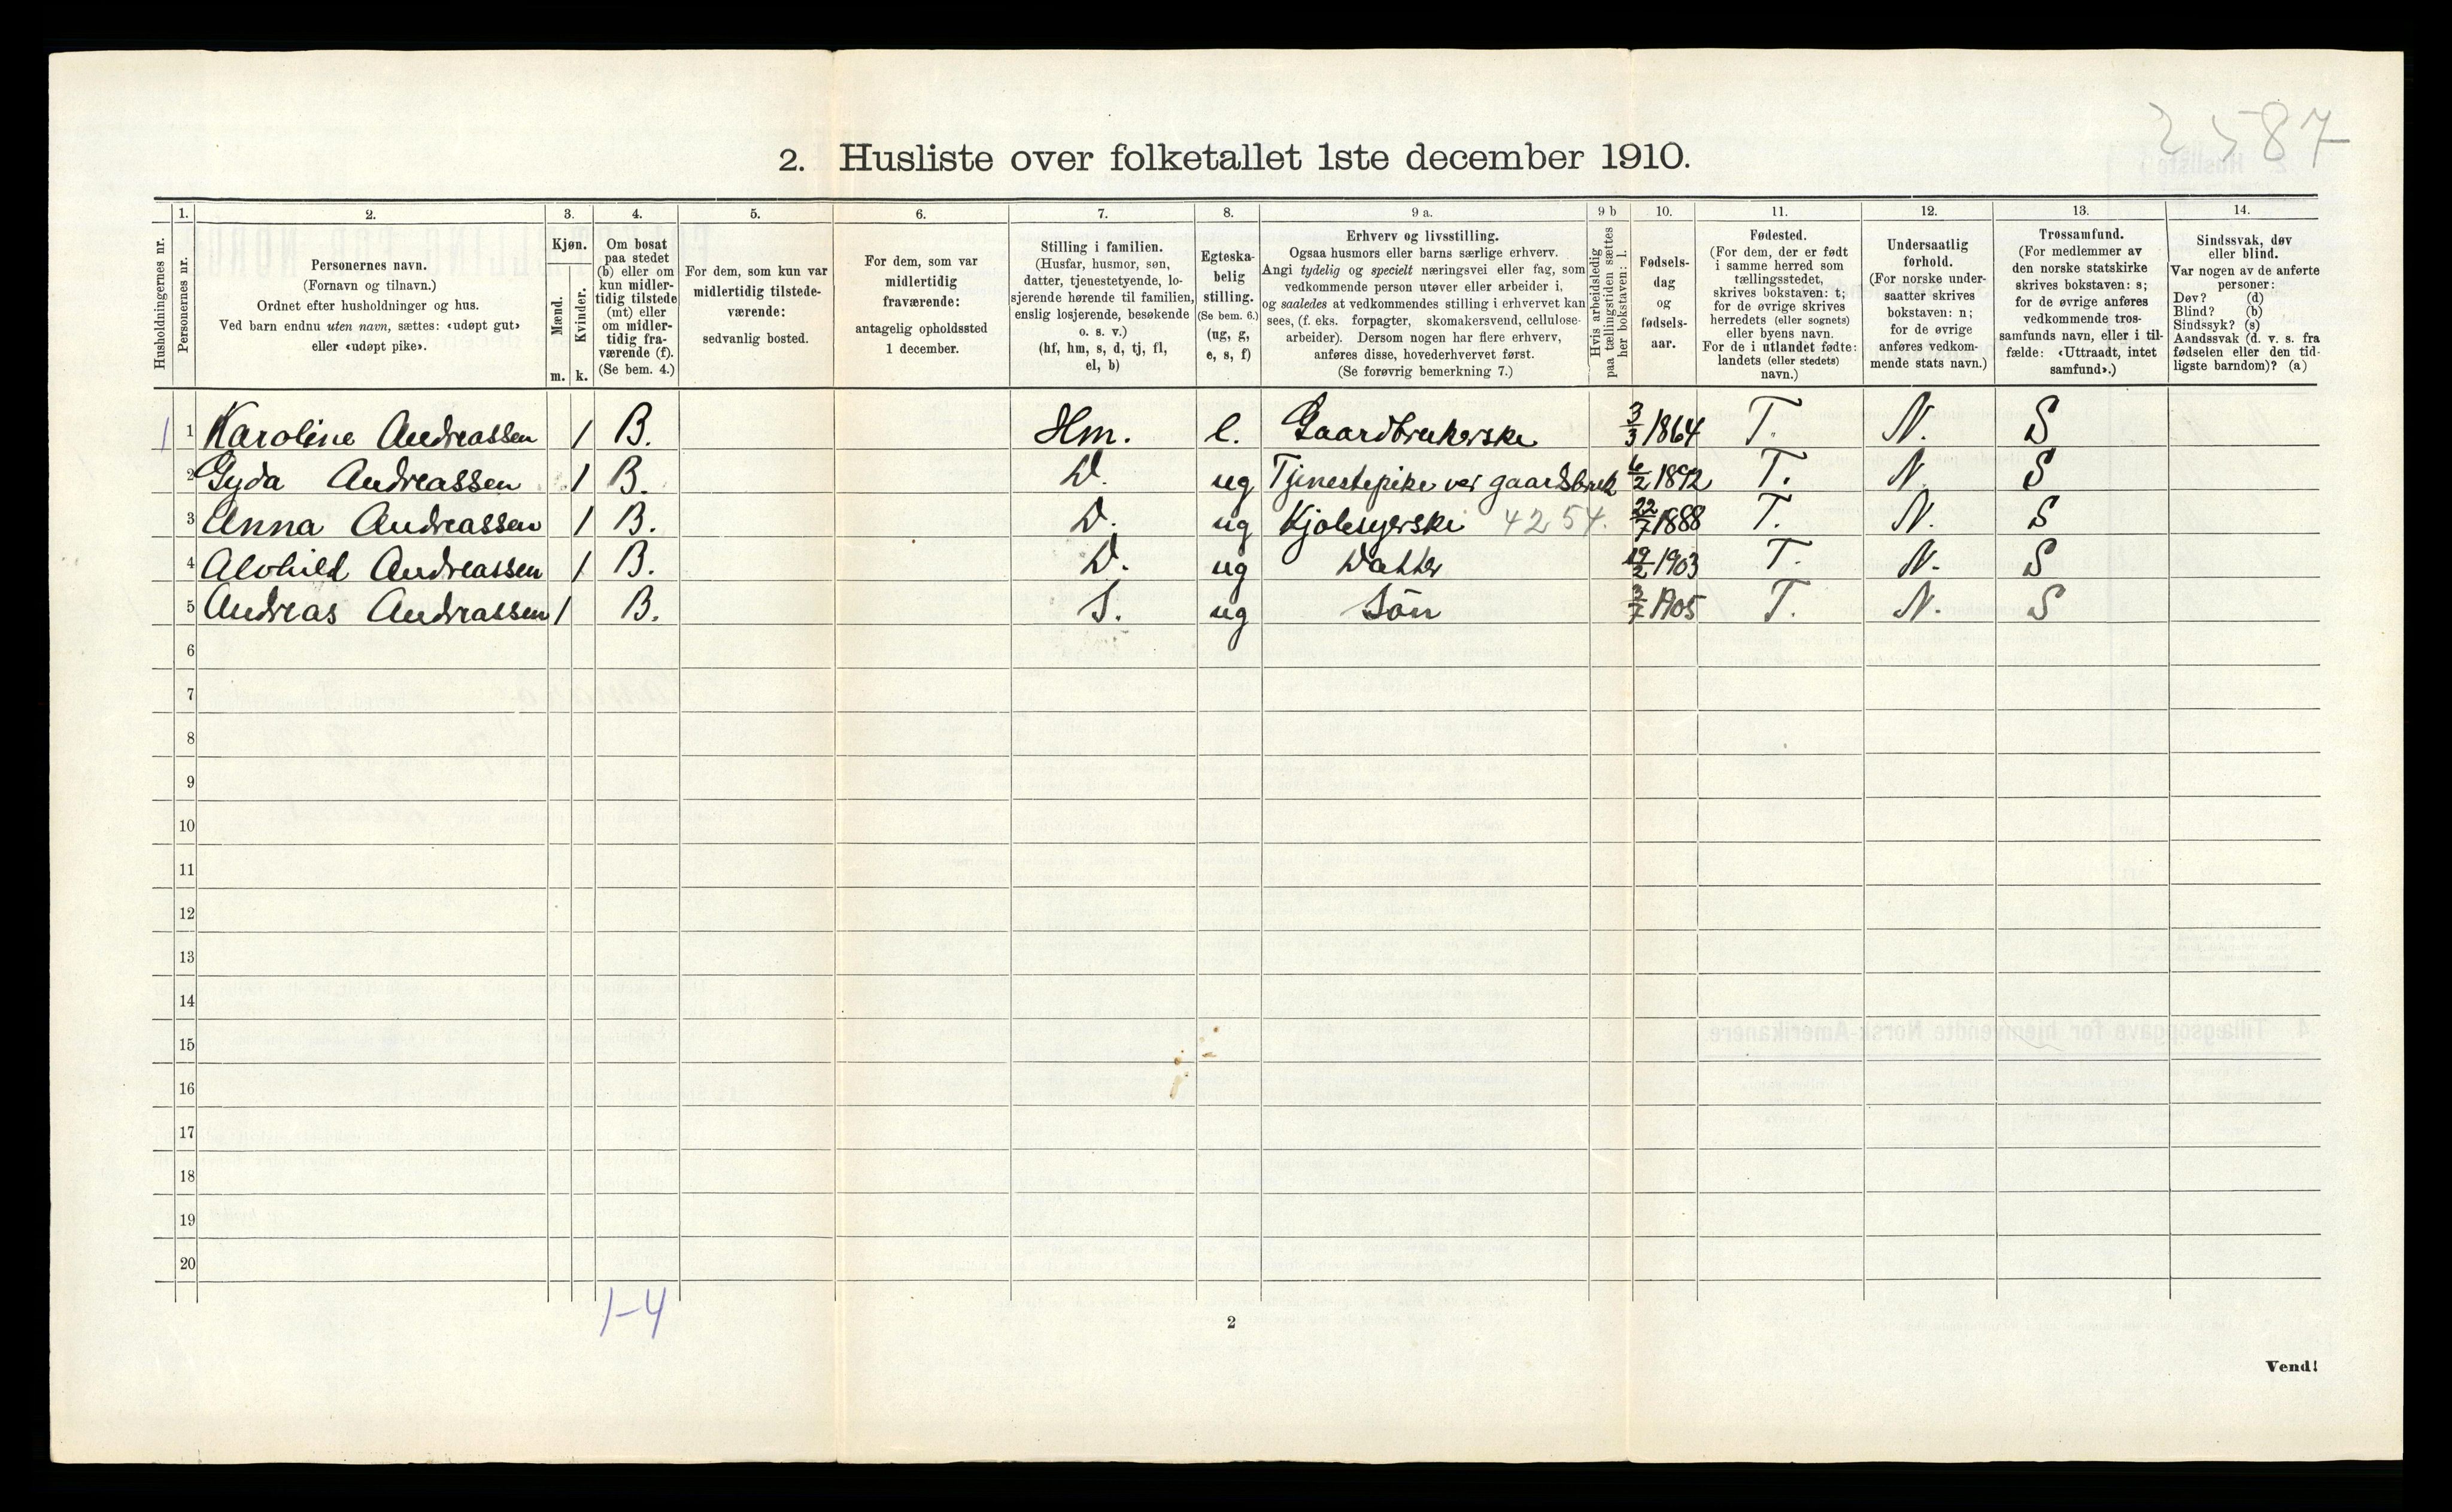 2587
2. Husliste over folketallet 1ste december 1910.
Husholdningernes nr.
1. Personernes nr.
2. Personernes navn. (Fornavn og tilnavn.) Ordnet efter husholdninger og hus. Ved barn endnu uten navn, sættes: «udøpt gut» eller «udøpt pike».
3. Kjøn. Mænd. m. Kvinder. k.
4. Om bosat paa stedet (b) eller om kun midler-tidig tilstede (mt) eller om midler-tidig fra-værende (f). (Se bem. 4.)
5. For dem, som kun var midlertidig tilstede-værende: sedvanlig bosted.
6. For dem, som var midlertidig fraværende: antagelig opholdssted 1 december.
7. Stilling i familien. (Husfar, husmor, søn, datter, tjenestetyende, lo-sjerende hørende til familien, enslig losjerende, besøkende o. s. v.) (hf, hm, s, d, tj, fl, el, b)
8. Egteska-belig stilling. (Se bem. 6.) (ug, g, e, s, f)
9 a. Erhverv og livsstilling. Ogsaa husmors eller barns særlige erhverv. Angi tydelig og specielt næringsvei eller fag, som vedkommende person utøver eller arbeider i, og saaledes at vedkommendes stilling i erhvervet kan sees, (f. eks. forpagter, skomakersvend, cellulose-arbeider). Dersom nogen har flere erhverv, anføres disse, hovederhvervet først. (Se forøvrig bemerkning 7.)
9 b Hvis arbeidsledig paa tællingstiden sættes her bokstaven: l.
10. Fødsels-dag og fødsels-aar.
11. Fødested. (For dem, der er født i samme herred som tællingsstedet, skrives bokstaven: t; for de øvrige skrives herredets (eller sognets) eller byens navn. For de i utlandet fødte: landets (eller stedets) navn.)
12. Undersaatlig forhold. (For norske under-saatter skrives bokstaven: n; for de øvrige anføres vedkom-mende stats navn.)
13. Trossamfund. (For medlemmer av den norske statskirke skrives bokstaven: s; for de øvrige anføres vedkommende tros-samfunds navn, eller i til-fælde: «Uttraadt, intet samfund».)
14. Sindssvak, døv eller blind. Var nogen av de anførte personer: Døv? (d) Blind? (b) Sindssyk? (s) Aandssvak (d. v. s. fra fødselen eller den tid-ligste barndom)? (a)
1 1 Karoline Andreassen 1 B. Hm. e. Gaardbrukerske 3/3 1864 T. N. S
2 Gyda Andreassen 1 B. D. ug Tjenestepike ver gaardsbruk 6/2 1892 T. N. S
3 Anna Andreassen 1 B. D. ug Kjolesyerske 4254. 22/7 1888 T. N. S
4 Alvhild Andreassen 1 B. D. ug Datter 19/2 1903 T. N. S
5 Andreas Andreassen 1 B. S. ug Sön 3/7 1905 T. N. S
6
7
8
9
10
11
12
13
14
15
16
17
18
19
20
1-4
2
Vend!